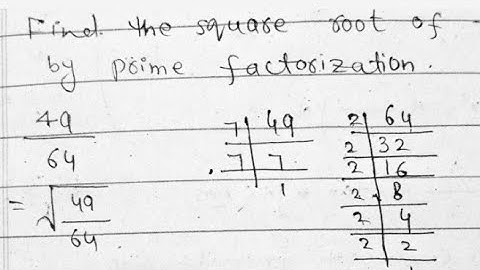 Find the square root of
by prime factorization.
49/64
= √49/64
7 | 49
7 | 7
1
2 | 64
2 | 32
2 | 16
2 | 8
2 | 4
2 | 2
1